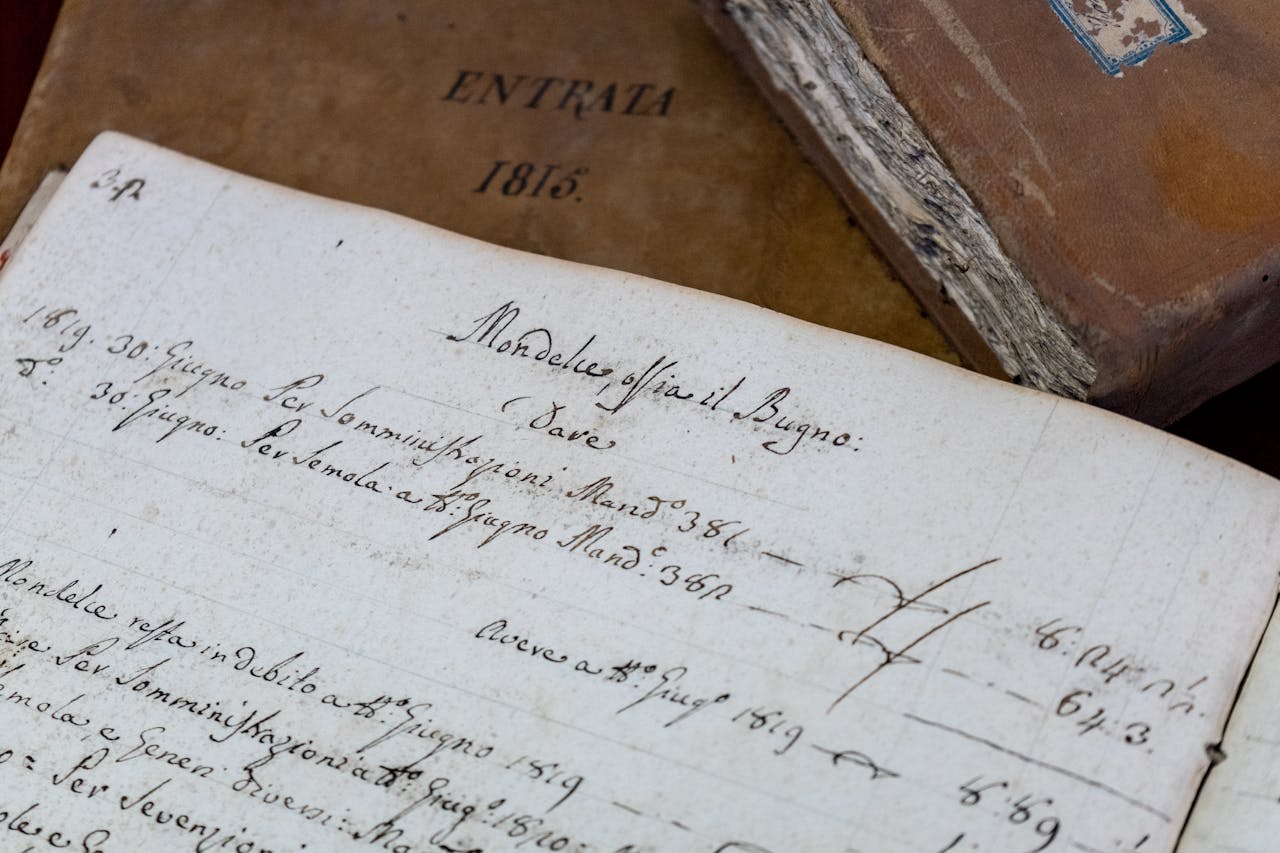 ENTRATA
1815.
Mondelce, ossia il Bugno:
Dare
1819. 30: Giugno Per Somministrazioni Mand.º 381
d.º 30: Giugno: Per Semola a tt.º Giugno Mand.º: 382
64: 3.
Avere a tt.º Giug.º 1819
Mondelce resta in debito a tt.º Giugno 1819
Per Somministrazioni a tt.º Giug.º: 1820
e Generi diversi:
= Per